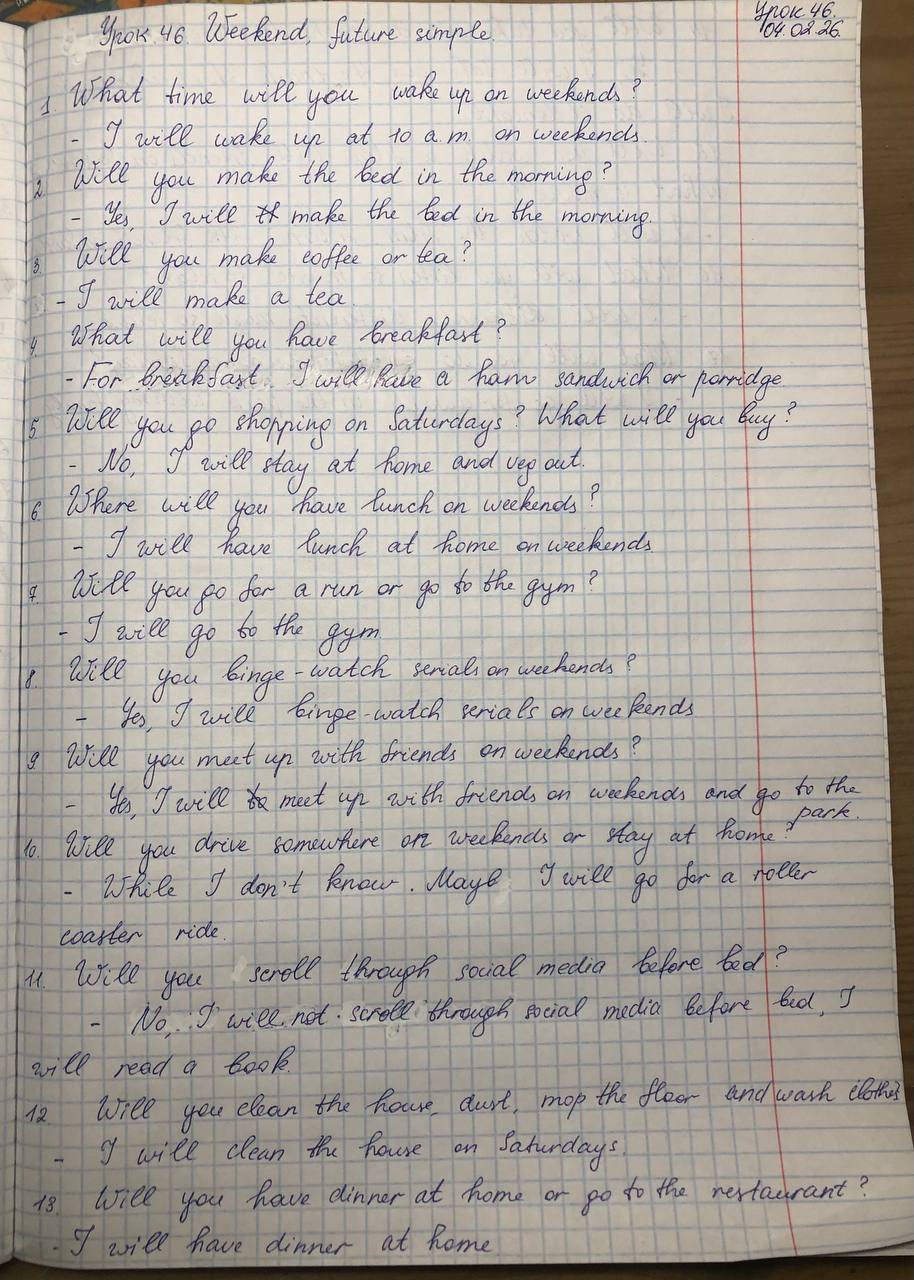 Урок 46. Weekend, future simple.
Урок 46.
04.02.26.
1. What time will you wake up on weekends?
- I will wake up at 10 a.m. on weekends.
2. Will you make the bed in the morning?
- Yes, I will make the bed in the morning.
3. Will you make coffee or tea?
- I will make a tea.
4. What will you have breakfast?
- For breakfast I will have a ham sandwich or porridge
5. Will you go shopping on Saturdays? What will you buy?
- No, I will stay at home and veg out.
6. Where will you have lunch on weekends?
- I will have lunch at home on weekends
7. Will you go for a run or go to the gym?
- I will go to the gym.
8. Will you binge-watch serials on weekends?
- Yes, I will binge-watch serials on weekends
9. Will you meet up with friends on weekends?
- Yes, I will meet up with friends on weekends and go to the
park.
10. Will you drive somewhere on weekends or stay at home?
- While I don't know. Mayb I will go for a roller
coaster ride.
11. Will you scroll through social media before bed?
- No, I will not scroll through social media before bed, I
will read a book.
12. Will you clean the house, dust, mop the floor and wash clothes
- I will clean the house on Saturdays.
13. Will you have dinner at home or go to the restaurant?
- I will have dinner at home